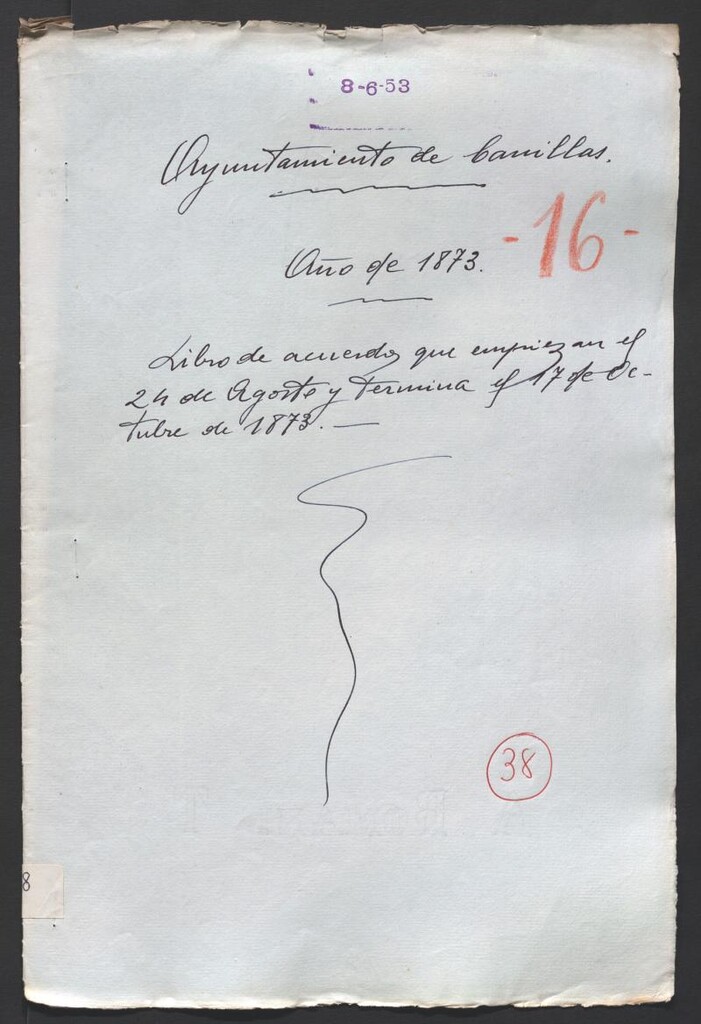 8-6-53
Ayuntamiento de Canillas.
-16-
Año de 1873.
Libro de acuerdos que empiezan el
24 de Agosto y termina el 17 de Oc-
tubre de 1873. —
38
8